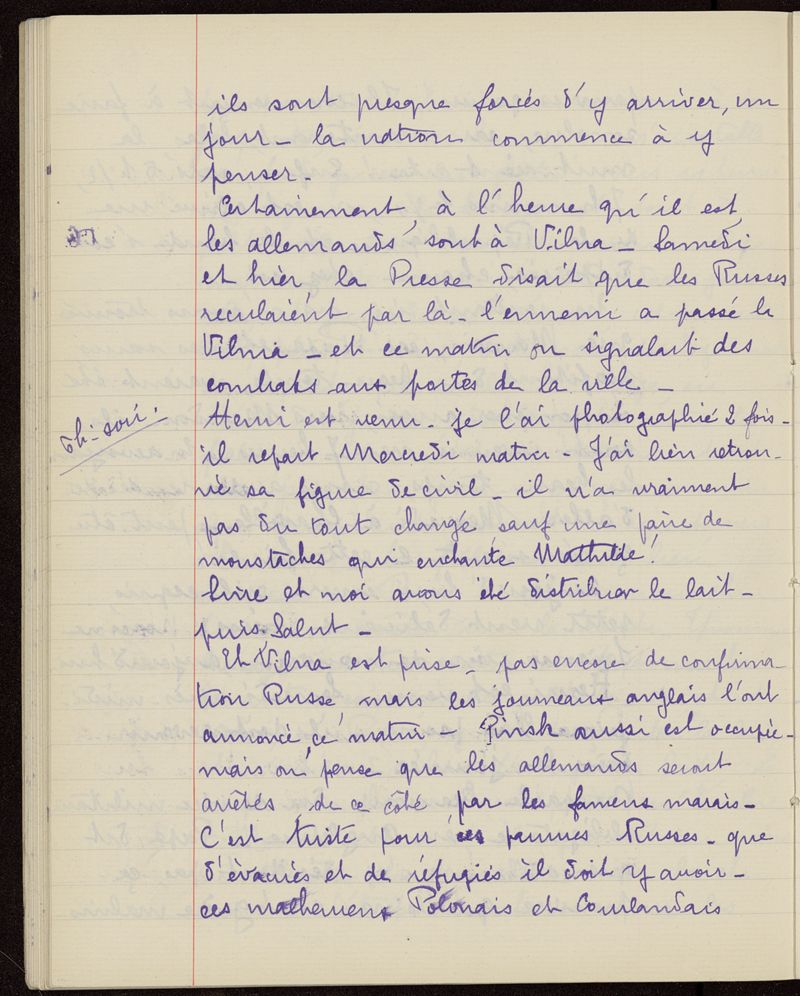 ils sont presque forcés d'y arriver, un
jour _ la nation commence à y
penser _
Certainement, à l'heure qu'il est,
les allemands sont à Vilna _ Samedi
et hier, la Presse disait que les Russes
reculaient par là _ l'ennemi a passé la
Vilnia _ et ce matin on signalait des
combats aux portes de la ville _
6h. soir.
Henri est venu. Je l'ai photographié 2 fois _
il repart Mercredi matin _ J'ai bien retrou-
vé sa figure de civil _ il n'a vraiment
pas du tout changé sauf une paire de
moustaches qui enchante Mathilde!
et moi avons été distribuer le lait _
puis Salut _
Et Vilna est prise _ pas encore de confirma-
tion Russe, mais les journeaux anglais l'ont
annoncé, ce matin _ Pinsk aussi est occupée _
mais on pense que les allemands seront
arrêtés, de ce côté par les fameux marais _
C'est triste pour ces pauvres Russes _ que
d'évacués et de réfugiés il doit y avoir _
ces malheureux Polonais et Courlandais